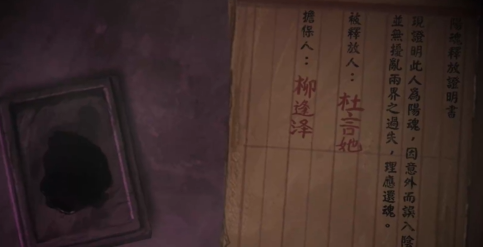 陽魂釋放證明書
現證明此人為陽魂，因意外而誤入陰
並無擾亂兩界之過失，理應還魂。
被釋放人：杜言她
擔保人：柳逢泽